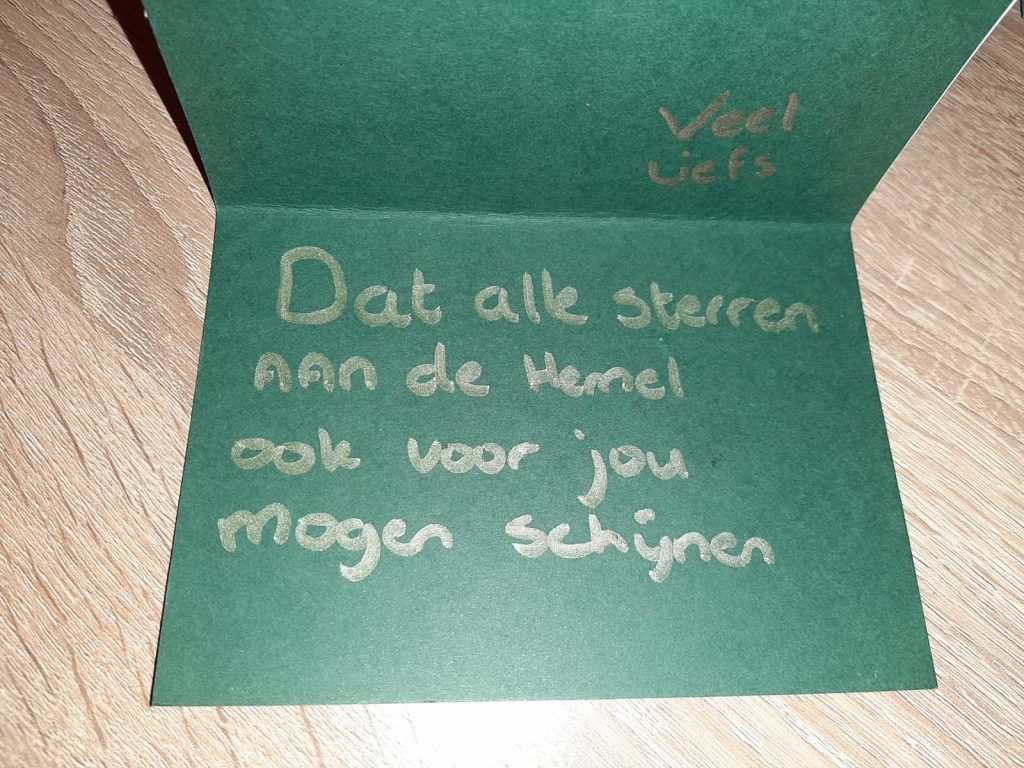 Veel
liefs
Dat alle sterren
AAn de Hemel
ook voor jou
mogen schijnen